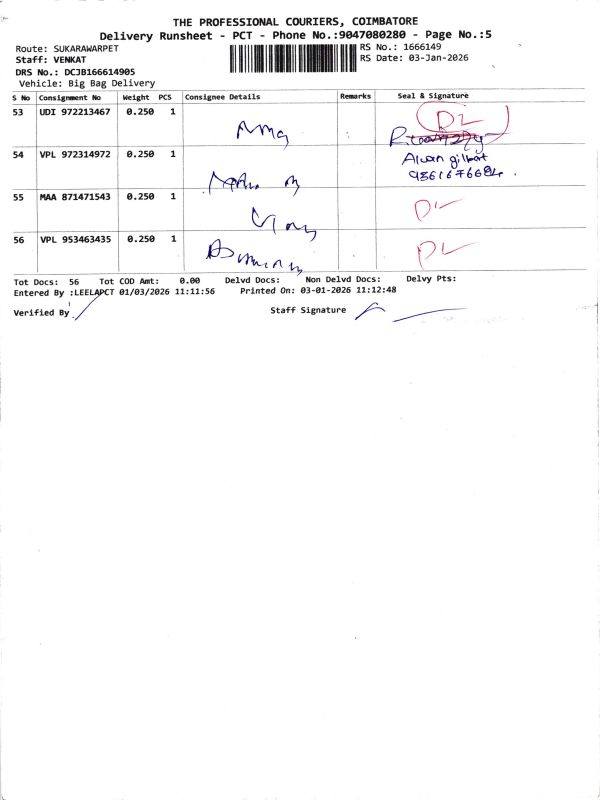 THE PROFESSIONAL COURIERS, COIMBATORE
Delivery Runsheet - PCT - Phone No.:9047080280 - Page No.:5
Route: SUKARAWARPET
RS No.: 1666149
Staff: VENKAT
RS Date: 03-Jan-2026
DRS No.: DCJB166614905
Vehicle: Big Bag Delivery
S No Consignment No Weight PCS Consignee Details Remarks Seal & Signature
53 UDI 972213467 0.250 1 DL
54 VPL 972314972 0.250 1
gilbert
55 MAA 871471543 0.250 1 DL
56 VPL 953463435 0.250 1 DL
Tot Docs: 56 Tot COD Amt: 0.00 Delvd Docs: Non Delvd Docs: Delvy Pts:
Entered By :LEELAPCT 01/03/2026 11:11:56 Printed On: 03-01-2026 11:12:48
Verified By
Staff Signature